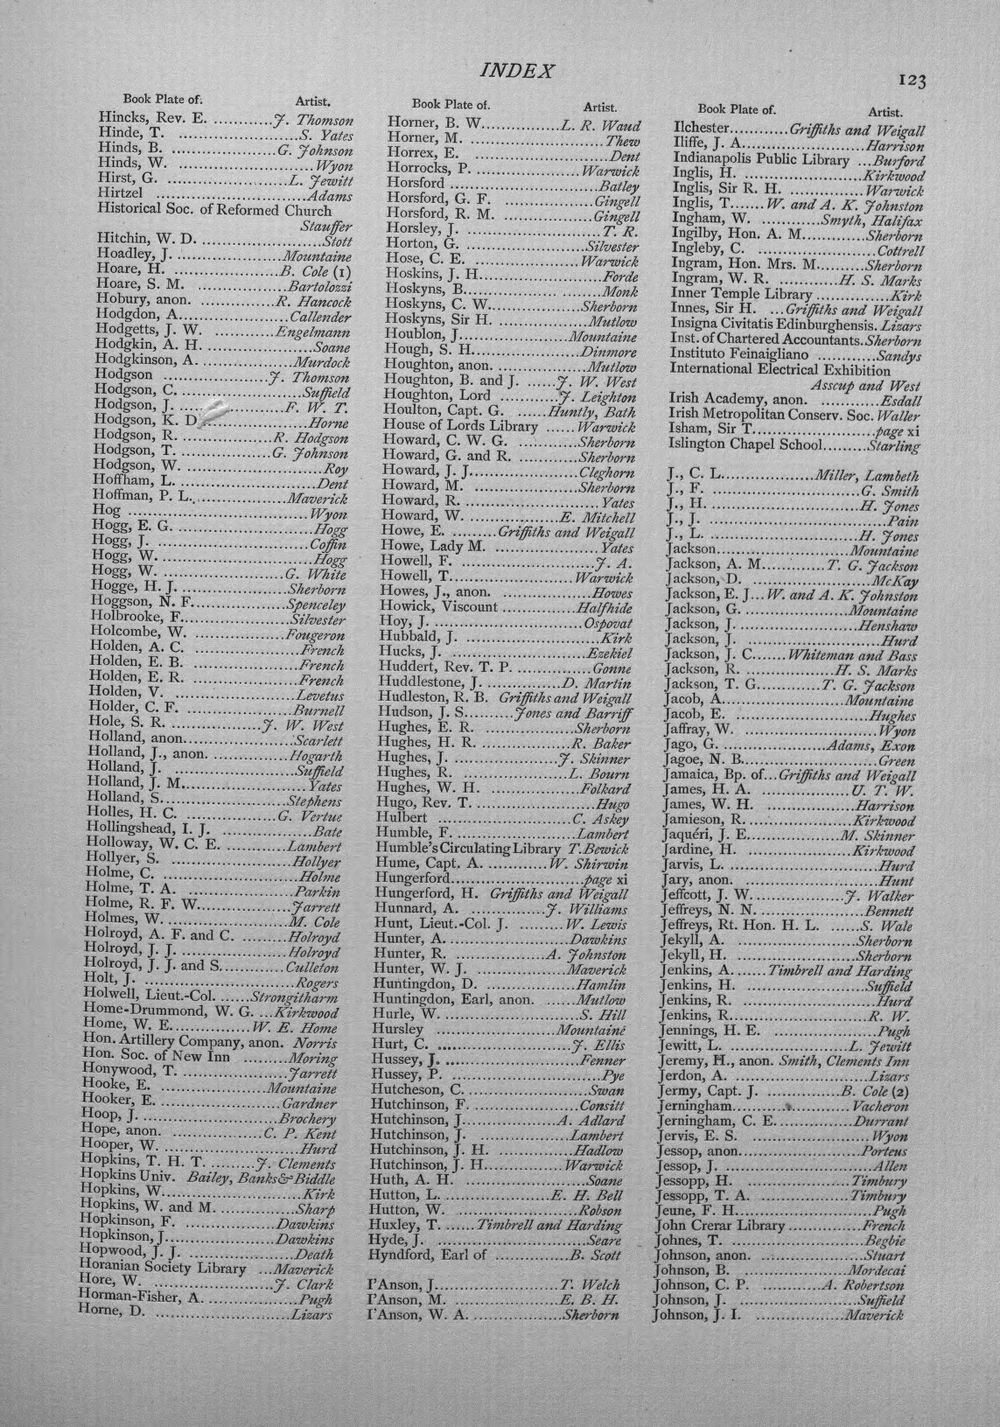 INDEX
123
Book Plate of. Artist.
Hincks, Rev. E. ............J. Thomson
Hinde, T. ....................S. Yates
Hinds, B. ....................G. Johnson
Hinds, W. ..........................Wyon
Hirst, G. .....................L. Jewitt
Hirtzel ..........................Adams
Historical Soc. of Reformed Church
Stauffer
Hitchin, W. D. ....................Stott
Hoadley, J. ..................Mountaine
Hoare, H. ..................B. Cole (1)
Hoare, S. M. ................Bartolozzi
Hobury, anon. .............R. Hancock
Hodgdon, A.....................Callender
Hodgetts, J. W. ...........Engelmann
Hodgkin, A. H. ....................Soane
Hodgkinson, A. .................Murdock
Hodgson ....................J. Thomson
Hodgson, C.......................Suffield
Hodgson, J. .................F. W. T.
Hodgson, K. D....................Horne
Hodgson, R. ................R. Hodgson
Hodgson, T. .................G. Johnson
Hodgson, W. .......................Roy
Hoffham, L. ........................Dent
Hoffman, P. L...................Maverick
Hog ..............................Wyon
Hogg, E. G. ........................Hogg
Hogg, J. ..........................Coffin
Hogg, W. ..........................Hogg
Hogg, W. .....................G. White
Hogge, H. J. ....................Sherborn
Hoggson, N. F..................Spenceley
Holbrooke, F....................Silvester
Holcombe, W. .................Fougeron
Holden, A. C. ...................French
Holden, E. B. ....................French
Holden, E. R. ....................French
Holden, V. ......................Levetus
Holder, C. F. ...................Burnell
Hole, S. R. .................J. W. West
Holland, anon....................Scarlett
Holland, J., anon. ..............Hogarth
Holland, J. ......................Suffield
Holland, J. M.....................Yates
Holland, S......................Stephens
Holles, H. C. .................G. Vertue
Hollingshead, I. J. ................Bate
Holloway, W. C. E. ............Lambert
Hollyer, S. .....................Hollyer
Holme, C. ........................Holme
Holme, T. A. .....................Parkin
Holme, R. F. W..................Jarrett
Holmes, W. .....................M. Cole
Holroyd, A. F. and C. .........Holroyd
Holroyd, J. J. ..................Holroyd
Holroyd, J. J. and S............Culleton
Holt, J. .........................Rogers
Holwell, Lieut.-Col. ......Strongitharm
Home-Drummond, W. G. ...Kirkwood
Home, W. E..............W. E. Home
Hon. Artillery Company, anon. Norris
Hon. Soc. of New Inn .........Moring
Honywood, T. ...................Jarrett
Hooke, E. .....................Mountaine
Hooker, E. .....................Gardner
Hoop, J. .......................Brochery
Hope, anon. ................C. P. Kent
Hooper, W. .......................Hurd
Hopkins, T. H. T. .........J. Clements
Hopkins Univ. Bailey, Banks & Biddle
Hopkins, W........................Kirk
Hopkins, W. and M. .............Sharp
Hopkinson, F. ..................Dawkins
Hopkinson, J....................Dawkins
Hopwood, J. J. ...................Death
Horanian Society Library ...Maverick
Hore, W. .....................J. Clark
Horman-Fisher, A. ...............Pugh
Horne, D. .......................Lizars
Book Plate of. Artist.
Horner, B. W................L. R. Waud
Horner, M. ........................Thew
Horrex, E. ........................Dent
Horrocks, P. ...................Warwick
Horsford .........................Batley
Horsford, G. F. .................Gingell
Horsford, R. M. .................Gingell
Horsley, J. .......................T. R.
Horton, G. .....................Silvester
Hose, C. E. ....................Warwick
Hoskins, J. H.....................Forde
Hoskyns, B.................. .......Monk
Hoskyns, C. W..................Sherborn
Hoskyns, Sir H. ................Mutlow
Houblon, J....................Mountaine
Hough, S. H....................Dinmore
Houghton, anon. ................Mutlow
Houghton, B. and J. ......J. W. West
Houghton, Lord ...........J. Leighton
Houlton, Capt. G. ......Huntly, Bath
House of Lords Library ......Warwick
Howard, C. W. G. .............Sherborn
Howard, G. and R. ............Sherborn
Howard, J. J...................Cleghorn
Howard, M. ....................Sherborn
Howard, R. .......................Yates
Howard, W. ...............E. Mitchell
Howe, E. .........Griffiths and Weigall
Howe, Lady M. ..................Yates
Howell, F. ........................J. A.
Howell, T......................Warwick
Howes, J., anon. .................Howes
Howick, Viscount .............Halfhide
Hoy, J. .........................Ospovat
Hubbald, J. .......................Kirk
Hucks, J. .......................Ezekiel
Huddert, Rev. T. P. ..............Gonne
Huddlestone, J. .............D. Martin
Hudleston, R. B. Griffiths and Weigall
Hudson, J. S..........Jones and Barriff
Hughes, E. R. ..................Sherborn
Hughes, H. R. .................R. Baker
Hughes, J. ....................J. Skinner
Hughes, R. .....................L. Bourn
Hughes, W. H. ..................Folkard
Hugo, Rev. T. .....................Hugo
Hulbert .......................C. Askey
Humble, F. .....................Lambert
Humble's Circulating Library T. Bewick
Hume, Capt. A. ...........W. Shirwin
Hungerford......................page xi
Hungerford, H. Griffiths and Weigall
Hunnard, A. ...............J. Williams
Hunt, Lieut.-Col. J. .........W. Lewis
Hunter, A. ......................Dawkins
Hunter, R. ..................A. Johnston
Hunter, W. J. ..................Maverick
Huntingdon, D. .................Hamlin
Huntingdon, Earl, anon. ......Mutlow
Hurle, W. .......................S. Hill
Hursley .....................Mountaine
Hurt, C. .......................J. Ellis
Hussey, J. .......................Fenner
Hussey, P. .........................Pye
Hutcheson, C. .....................Swan
Hutchinson, F. .................Consitt
Hutchinson, J. ..............A. Adlard
Hutchinson, J. .................Lambert
Hutchinson, J. H. ..............Hadlow
Hutchinson, J. H...............Warwick
Huth, A. H. .....................Soane
Hutton, L. ..................E. H. Bell
Hutton, W. .....................Robson
Huxley, T. ......Timbrell and Harding
Hyde, J. .........................Seare
Hyndford, Earl of .............B. Scott
I'Anson, J....................T. Welch
I'Anson, M. .................E. B. H.
I'Anson, W. A. ................Sherborn
Book Plate of. Artist.
Ilchester............Griffiths and Weigall
Iliffe, J. A......................Harrison
Indianapolis Public Library ...Burford
Inglis, H. .....................Kirkwood
Inglis, Sir R. H. ..............Warwick
Inglis, T.......W. and A. K. Johnston
Ingham, W. ............Smyth, Halifax
Ingilby, Hon. A. M.............Sherborn
Ingleby, C. .....................Cottrell
Ingram, Hon. Mrs. M..........Sherborn
Ingram, W. R. ............H. S. Marks
Inner Temple Library ..............Kirk
Innes, Sir H. ...Griffiths and Weigall
Insigna Civitatis Edinburghensis. Lizars
Inst. of Chartered Accountants..Sherborn
Instituto Feinaigliano ............Sandys
International Electrical Exhibition
Asscup and West
Irish Academy, anon. ............Esdall
Irish Metropolitan Conserv. Soc. Waller
Isham, Sir T......................page xi
Islington Chapel School.........Starling
J., C. L...................Miller, Lambeth
J., F. .........................G. Smith
J., H. .........................H. Jones
J., J. .............................Pain
J., L. .........................H. Jones
Jackson........................Mountaine
Jackson, A. M............T. G. Jackson
Jackson, D. ......................McKay
Jackson, E. J...W. and A. K. Johnston
Jackson, G. ...................Mountaine
Jackson, J. .....................Henshaw
Jackson, J. .......................Hurd
Jackson, J. C.......Whiteman and Bass
Jackson, R. ................H. S. Marks
Jackson, T. G............T. G. Jackson
Jacob, A......................Mountaine
Jacob, E. .......................Hughes
Jaffray, W. ......................Wyon
Jago, G. ..................Adams, Exon
Jagoe, N. B.......................Green
Jamaica, Bp. of...Griffiths and Weigall
James, H. A. ................U. T. W.
James, W. H. ..................Harrison
Jamieson, R. ..................Kirkwood
Jaquéri, J. E.................M. Skinner
Jardine, H. ....................Kirkwood
Jarvis, L. ........................Hurd
Jary, anon. .......................Hunt
Jeffcott, J. W................J. Walker
Jeffreys, N. N. ..................Bennett
Jeffreys, Rt. Hon. H. L. ......S. Wale
Jekyll, A. ......................Sherborn
Jekyll, H. ......................Sherborn
Jenkins, A. ......Timbrell and Harding
Jenkins, H. .....................Suffield
Jenkins, R. .......................Hurd
Jenkins, R.......................R. W.
Jennings, H. E. ...................Pugh
Jewitt, L. ....................L. Jewitt
Jeremy, H., anon. Smith, Clements Inn
Jerdon, A. .......................Lizars
Jermy, Capt. J. ...........B. Cole (2)
Jerningham.....................Vacheron
Jerningham, C. E...............Durrant
Jervis, E. S. .....................Wyon
Jessop, anon.....................Porteus
Jessop, J. ........................Allen
Jessopp, H. ....................Timbury
Jessopp, T. A. .................Timbury
Jeune, F. H.......................Pugh
John Crerar Library .............French
Johnes, T. .......................Begbie
Johnson, anon. ...................Stuart
Johnson, B. ....................Mordecai
Johnson, C. P. ...........A. Robertson
Johnson, J. .....................Suffield
Johnson, J. I. .................Maverick